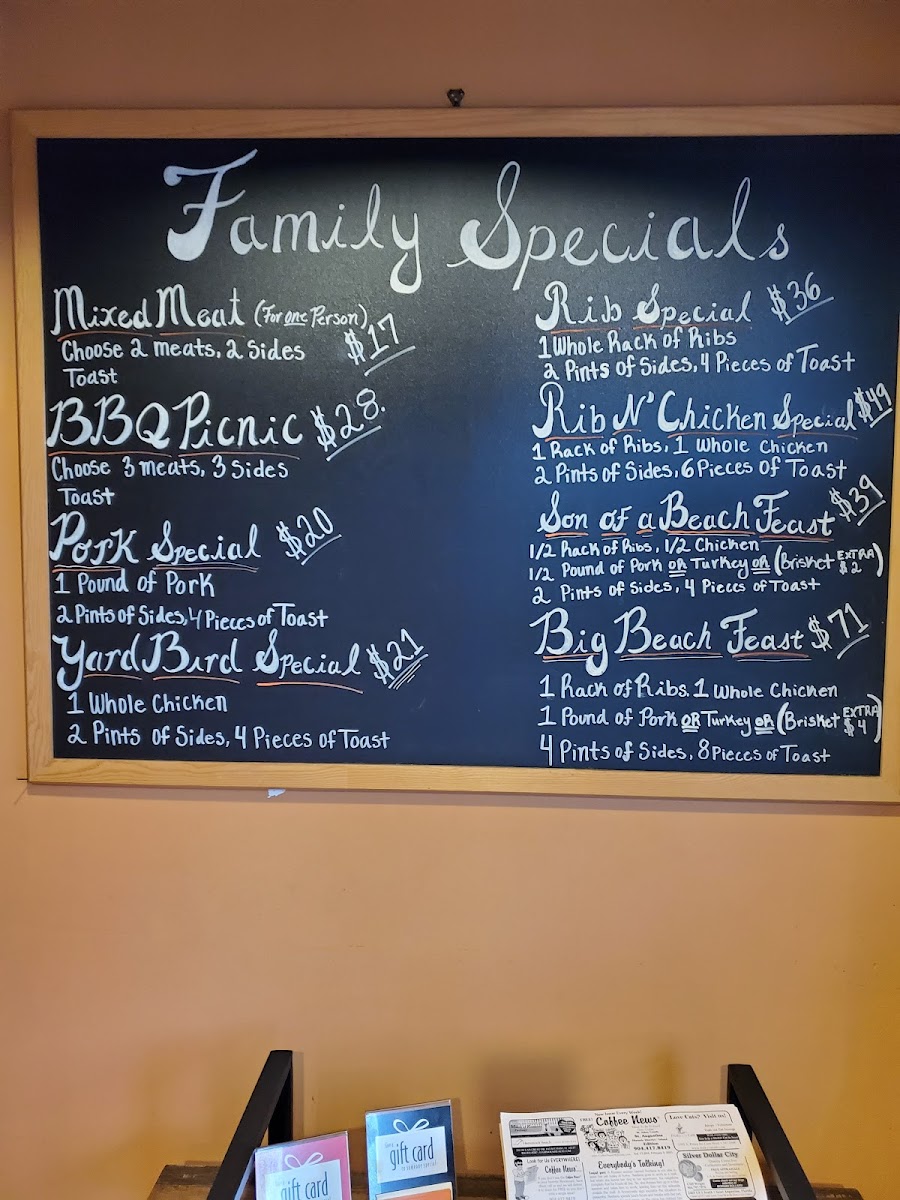 Family Specials
Mixed Meat (For one Person) $17
Choose 2 meats, 2 Sides
Toast
BBQ Picnic $28.
Choose 3 meats, 3 Sides
Toast
Pork Special $20
1 Pound of Pork
2 Pints of Sides, 4 Pieces of Toast
Yard Bird Special $21
1 Whole Chicken
2 Pints of Sides, 4 Pieces of Toast
Rib Special $36
1 Whole Rack of Ribs
2 Pints of Sides, 4 Pieces of Toast
Rib N' Chicken Special $49
1 Rack of Ribs, 1 Whole Chicken
2 Pints of Sides, 6 Pieces of Toast
Son of a Beach Feast $39
1/2 Rack of Ribs, 1/2 Chicken
1/2 Pound of Pork OR Turkey OR (Brisket EXTRA $2)
2 Pints of Sides, 4 Pieces of Toast
Big Beach Feast $71
1 Rack of Ribs. 1 Whole Chicken
1 Pound of Pork OR Turkey OR (Brisket EXTRA $4)
4 Pints of Sides, 8 Pieces of Toast
gift card
gift card
Coffee News
St. Augustine
Edition
904.417.8415
Look for Us EVERYWHERE!
Coffee News
Everybody's Talking!
Love Cats? Visit us!
Silver Dollar City